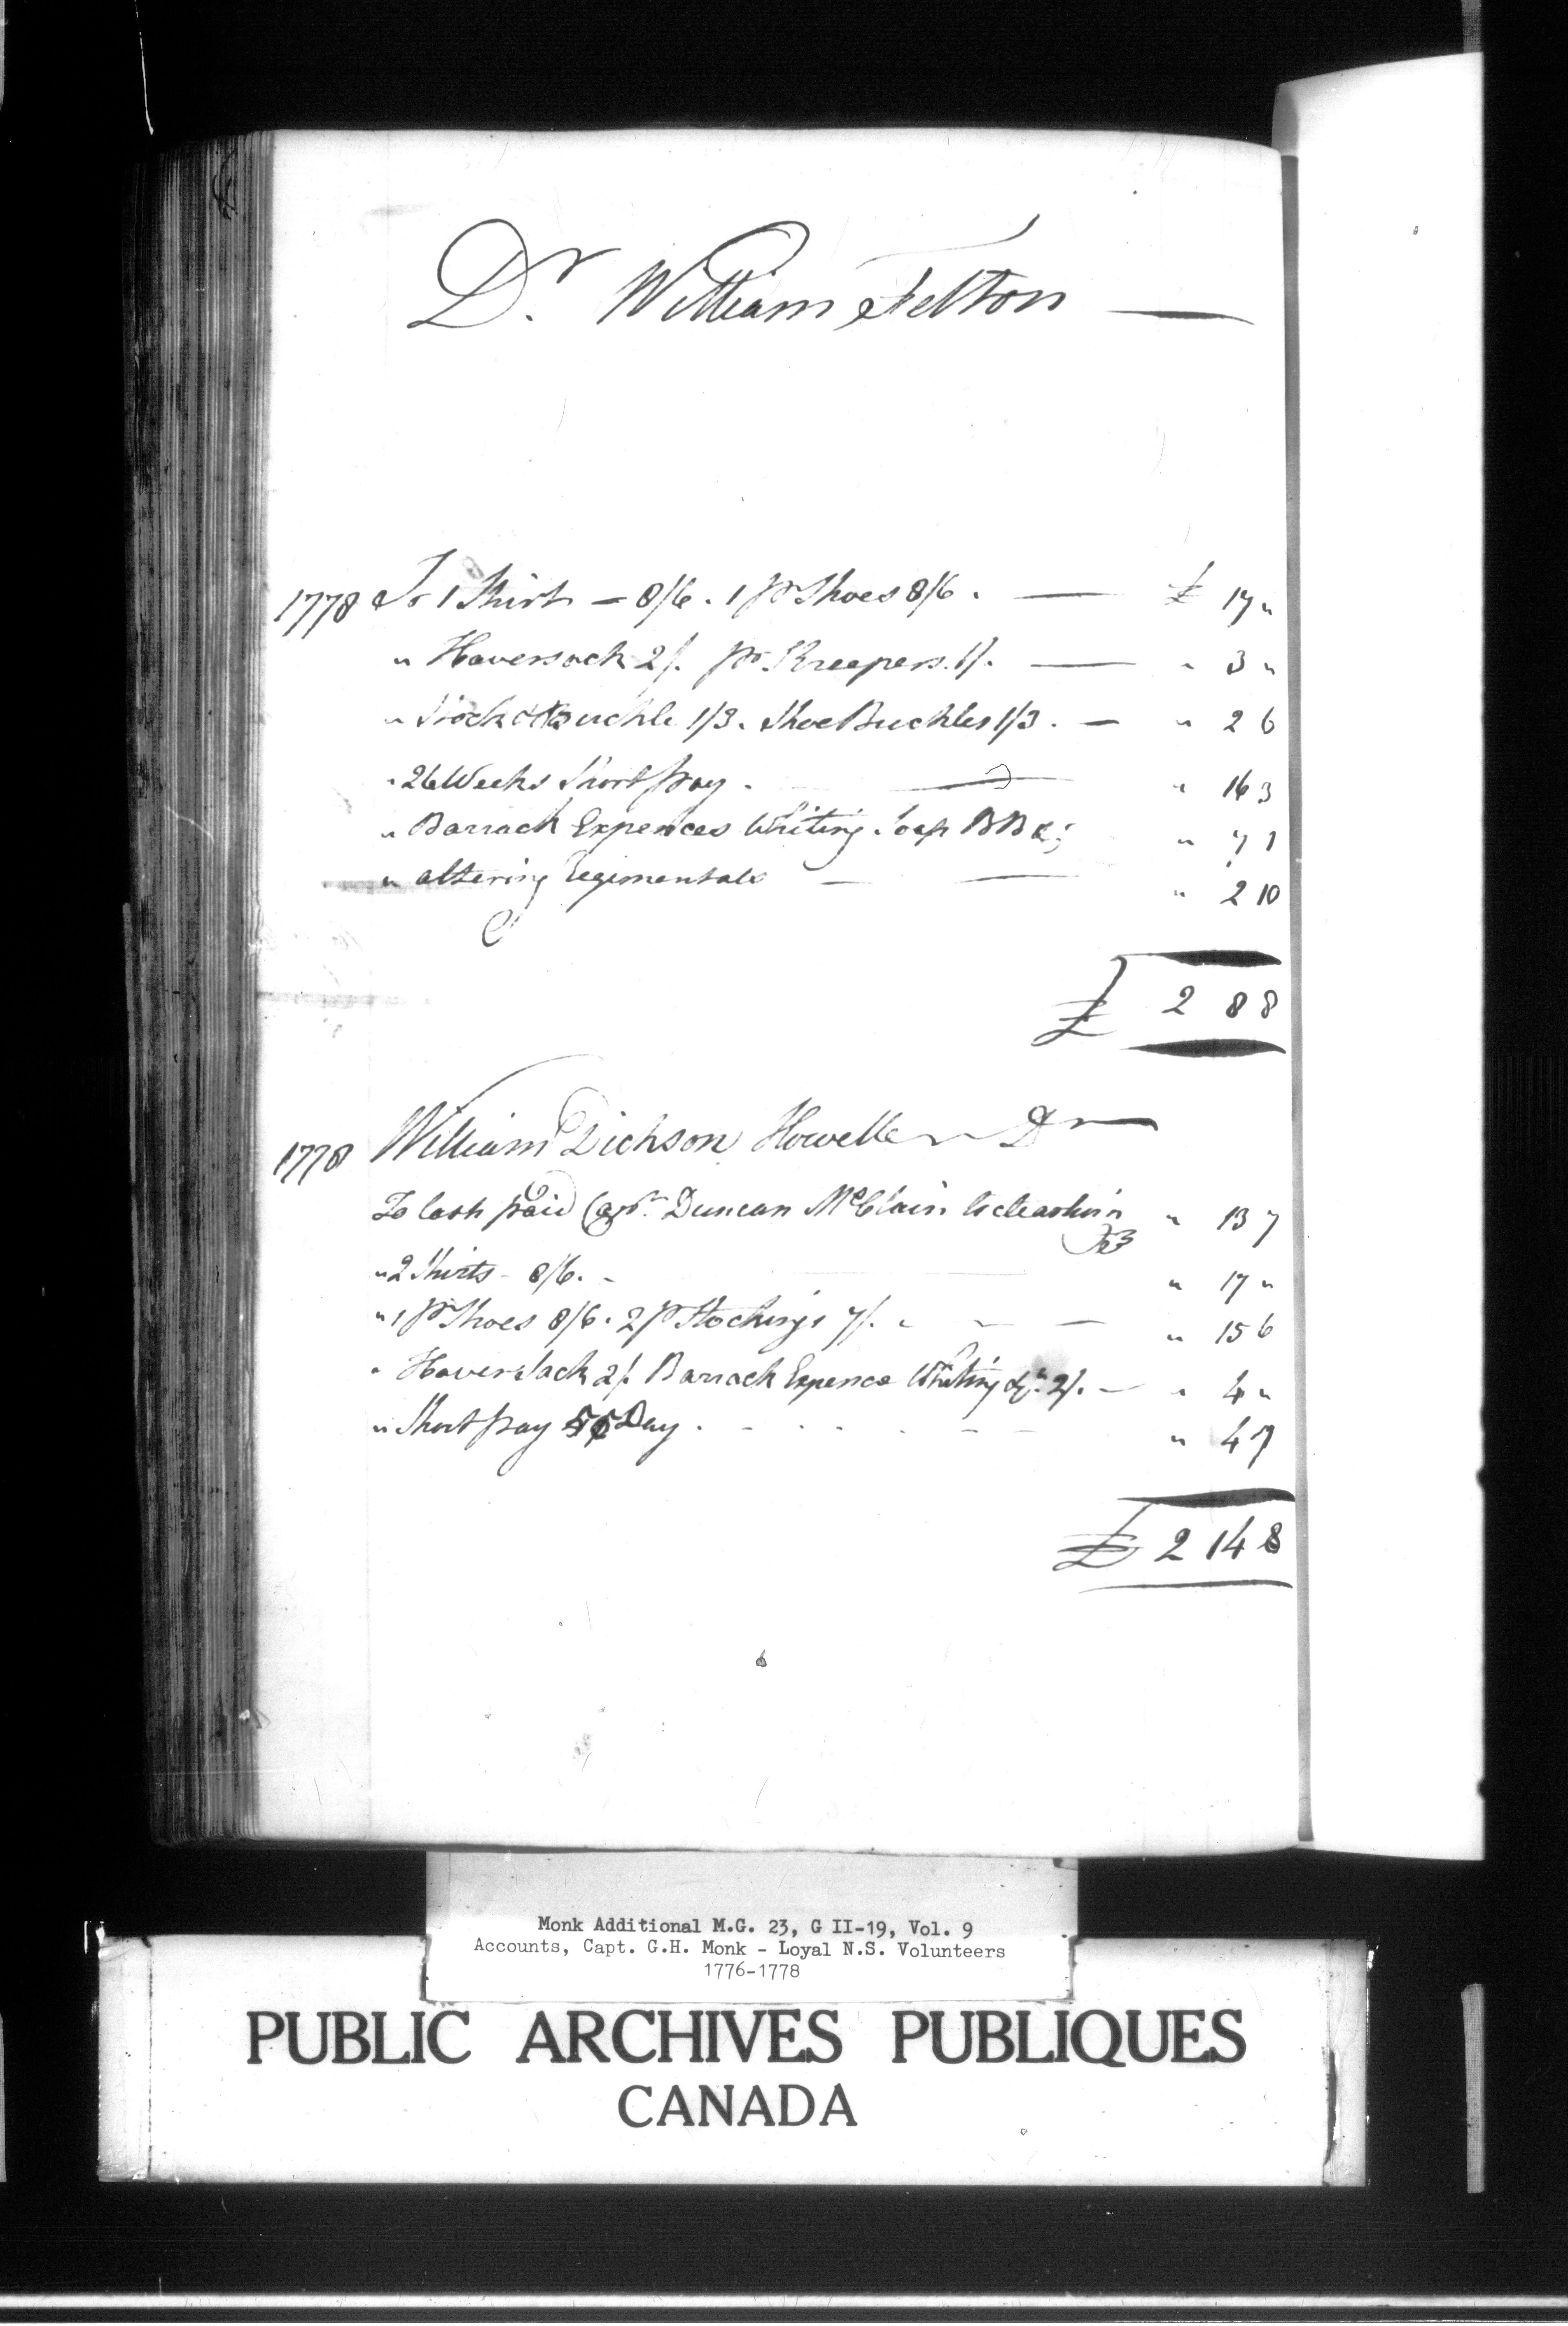 Dr. William Felton
1778 To 1 Shirt — 8/6. 1 pr Shoes 8/6. — £ 17 "
" Haversack 2/. pr Kreepers. 1/. — " 3 "
" Stock & Buckle 1/3. Shoe Buckles 1/3. — " 2 6
" 26 Weeks Short pay. — " 16 3
" Barrack Expences Whiting Soap BB &c " 7 1
" altering Regimentals — " 2 10
£ 2 8 8
1778 William Dickson Howell Dr
To Cash paid Capt. Duncan McClain " 13 7
" 2 Shirts - 8/6. - " 17 "
" 1 pr Shoes 8/6. 2 pr Stockings 7/. " 15 6
" Haversack 2/. Barrack Expence Whiting &c. 2/. — " 4 "
" Short pay Day. " 4 7
£ 2 14 8
Monk Additional M.G. 23, G II-19, Vol. 9
Accounts, Capt. G.H. Monk - Loyal N.S. Volunteers
1776-1778
PUBLIC ARCHIVES PUBLIQUES
CANADA